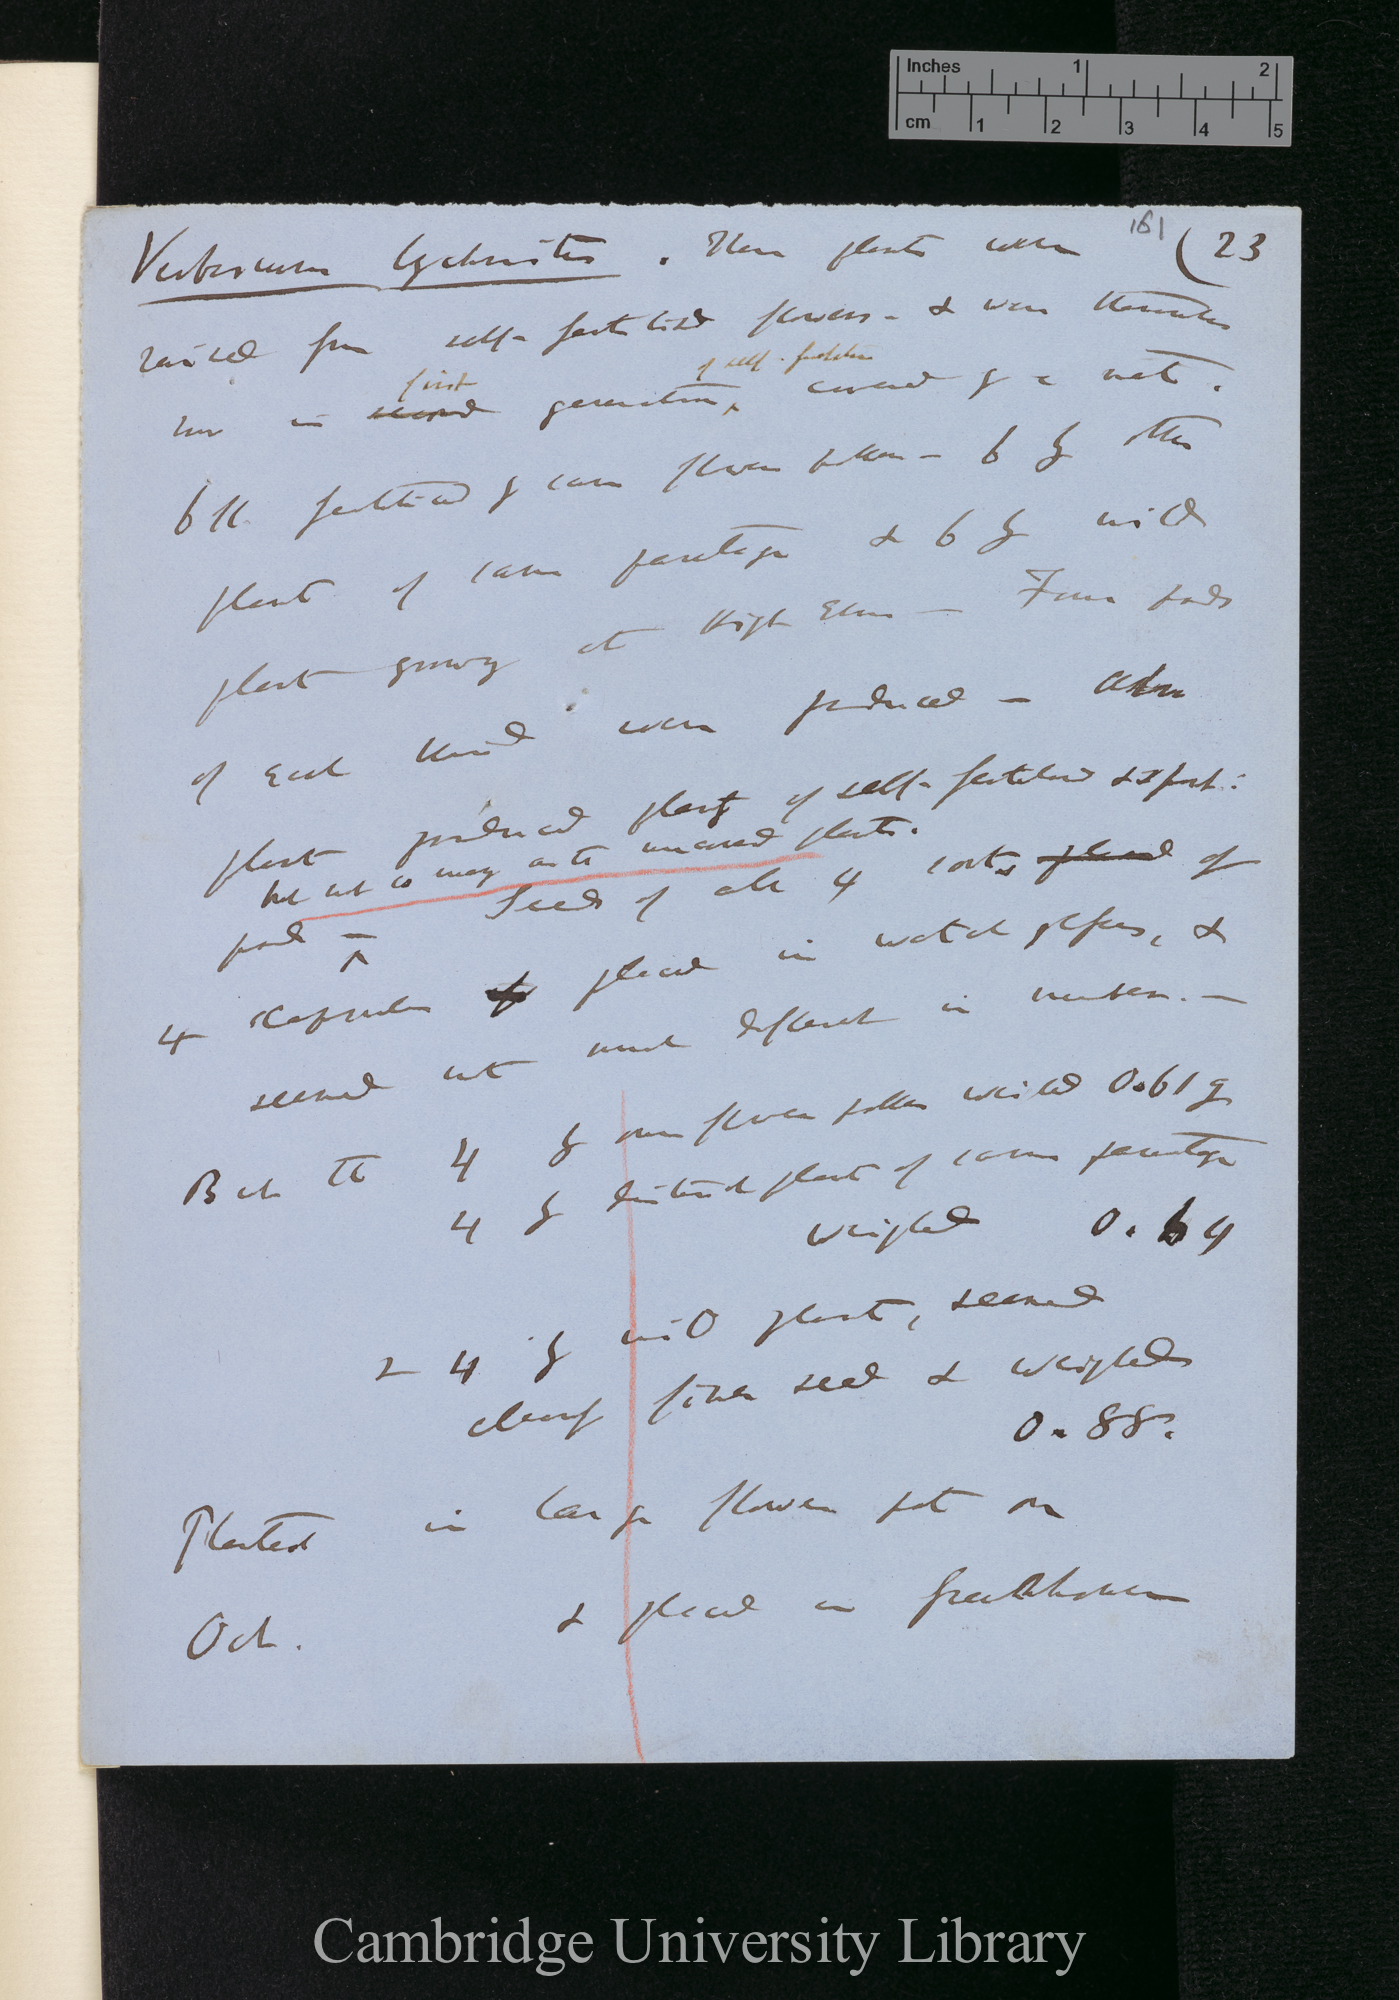 Inches 1 2
cm 1 2 3 4 5
161
Verbascum lychnitis. These plants were (23
raised from self-fertilised flowers - & were therefore
first of self-fertilisation
now in second generation, covered by a net.
6 fl. fertilised by own flower pollen - 6 by other
plant of same parentage & 6 by wild
plant growing at High Elms - Four pods
of each kind were produced -
plant produced plenty of self-fertilised
but not so many as the uncovered plants.
pods - Seeds of all 4 sorts placed of
4 capsules placed in watch glasses, &
seemed not much different in number. -
But the 4 by own flower pollen weighed 0.61 gr
4 by distinct plant of same parentage
weighed 0.64
& 4 by wild plant, seemed
clearly finer seed & weighed
0.88.
Planted in large flower pot on
Oct. & placed in greenhouse
Cambridge University Library